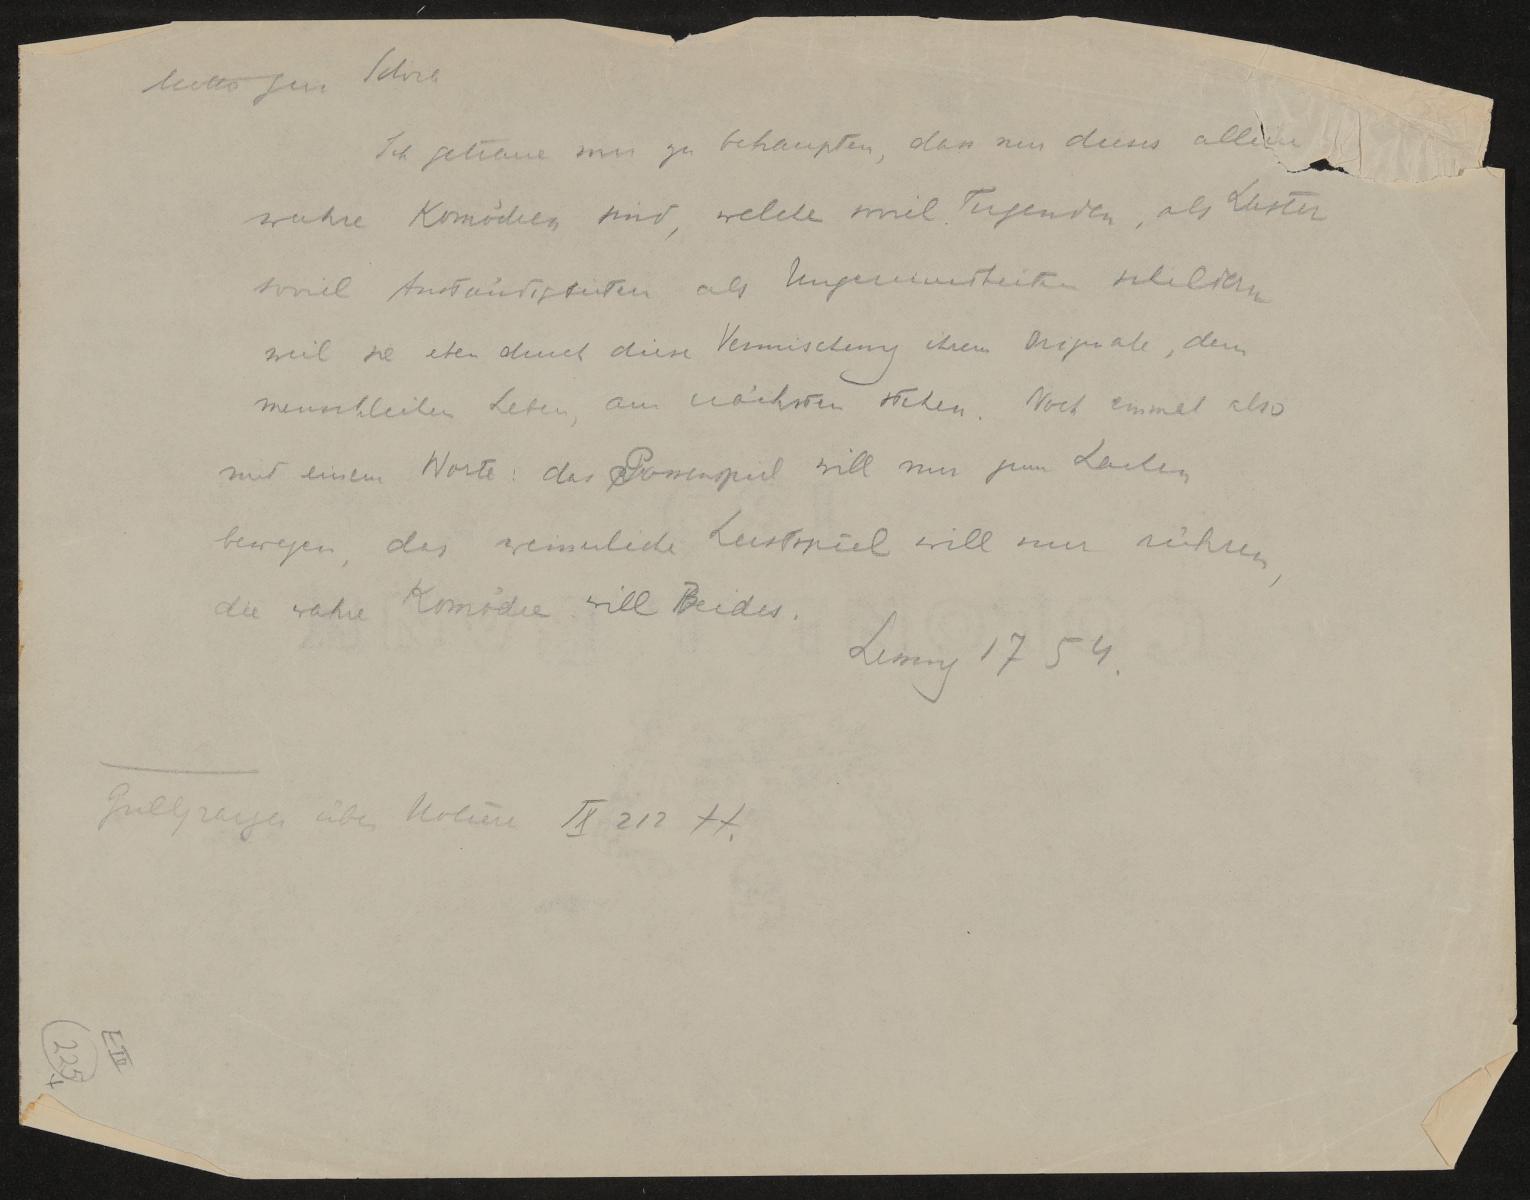 Motto zum Schwie
Ich getraue mir zu behaupten, dass nur dieses allein
wahre Komödien sind, welche soviel Tugenden, als Laster
soviel Anständigkeiten als Ungereimtheiten schildern
weil sie eben durch diese Vermischung ihrem Originale, dem
menschlichen Leben, am nächsten stehen. Noch einmal also
mit einem Worte: das Possenspiel will nur zum Lachen
bewegen, das weinerliche Lustspiel will nur rühren,
die wahre Komödie will Beides.
Lessing 1754.
Grillparzer über Moliere IX 212 ff.
E III
225